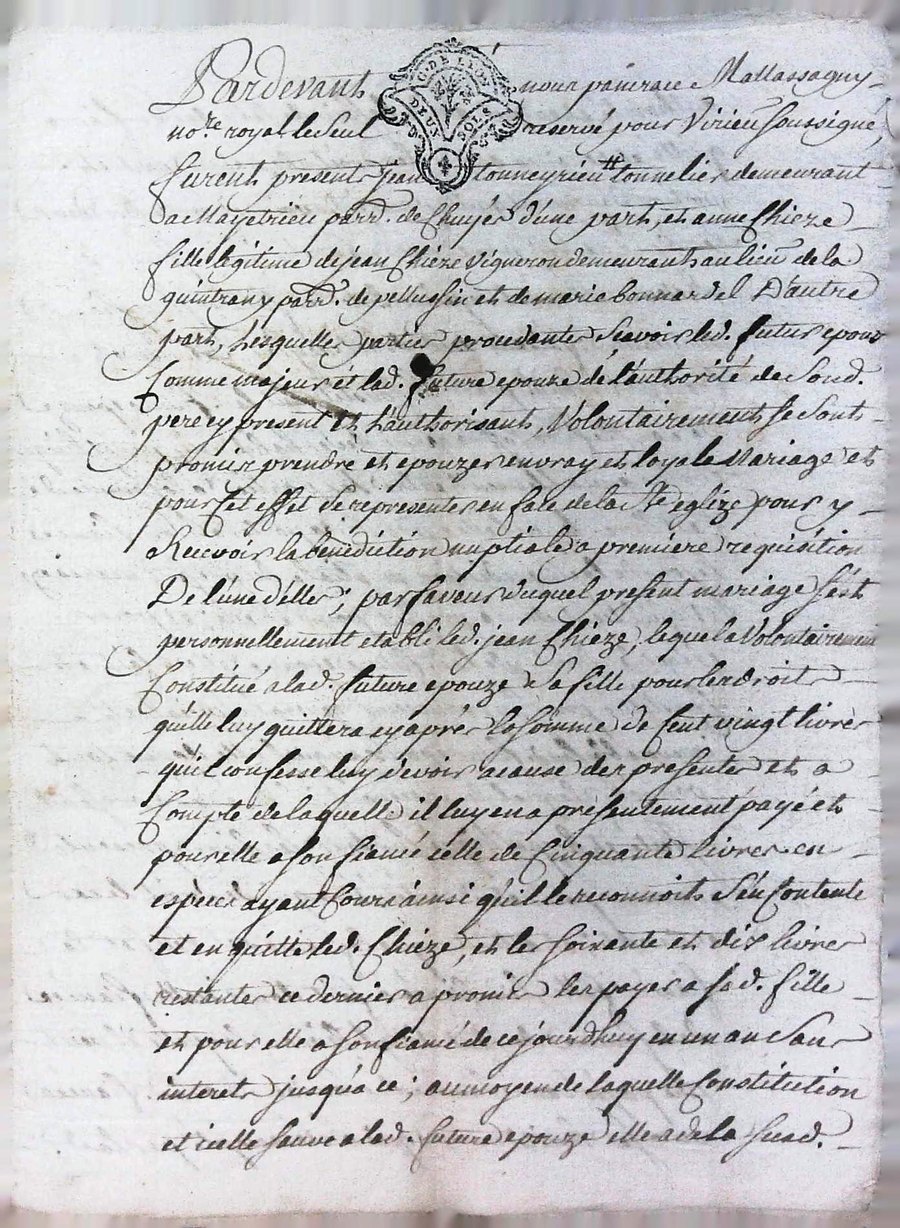 Pardevant nous pancrace Mallassagny
no.re royal le seul reservé pour Virieu soussigné,
G. DE LYON
DEUX SOLS
furent present jean tonneyrieu tonnelier demeurant
a Mayetrieu parr. de Chuyer d'une part, et anne Chieze
fille legitime de jean Chieze Vigneron demeurant au lieu de la
quintrany parr. de pellussin et de marie bonnardel D'autre
part, lesquelles parties procedantes scavoir led. futur epoux
Comme majeur et lad. future epouze de l'authorité de Sond.
pere cy present et l'authorisant, Volontairement se sont
promis prendre et epouzer en vray et loyale Mariage et
pour Cet effet se representer en face de la Ste eglize pour y
Recevoir la benediction nuptiale a premiere requisition
De l'une d'elles; par faveur duquel present mariage s'est
personnellement etabli led. jean Chieze, lequel a Volontairement
Constitué a lad. future epouze sa fille pour les droits
qu'elle luy quittera cy apres la somme de Cent vingt livres
qu'il confesse luy devoir a cause des presentes et a
Compte de laquelle il luy en a presentement payé et
pour elle a son fiancé celle de Cinquante livres en
especes ayant Cours ainsi qu'il le reconnoit s'en Contente
et en quitte led. Chieze, et les soixante et dix livres
restantes ce dernier a promis les payer a sad. fille
et pour elle a son fiancé de ce jourd'huy en un an sans
interets jusqu'a ce; au moyen de laquelle Constitution
et icelle sauve a lad. future epouze elle a de la susd.